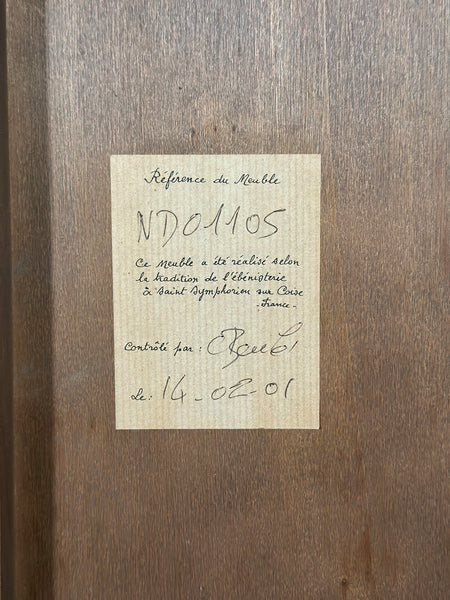 Référence du Meuble
ND01105
Ce Meuble a été réalisé selon
la tradition de l'ébénisterie
à Saint Symphorien sur Coise
-France-
Contrôlé par :
Le: 14-02-01